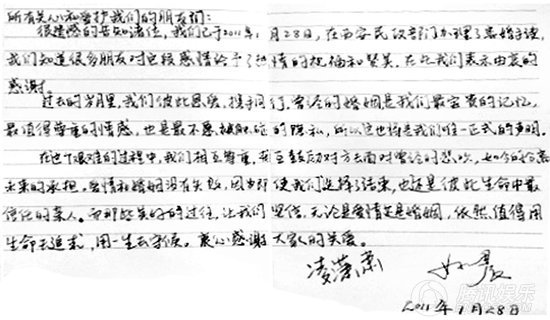 所有关心和爱护我们的朋友们：
很遗憾的告知诸位，我们已于2011年1月28日，在西安民政部门办理了离婚手续，
我们知道很多朋友对这段感情给予了热情的祝福和赞美，在此我们表示由衷的
感谢。
过去的岁月里，我们彼此恩爱，携手同行，曾经的婚姻是我们最宝贵的记忆，
最值得尊重的情感，也是最不愿被触碰的隐私，所以这也将是我们唯一正式的声明。
在这个艰难的过程中，我们相互尊重，相互鼓励对方去面对曾经的悲欢，如今的分离
未来的承担，爱情和婚姻没有失败，因为即使我们选择了结束，也还是彼此生命中最
信任的亲人。而那些美好的过往，让我们坚信，无论是爱情还是婚姻，依然值得用
生命去追求，用一生去守候。衷心感谢大家的关爱。
凌潇肃 姚晨
2011年1月28日
腾讯娱乐